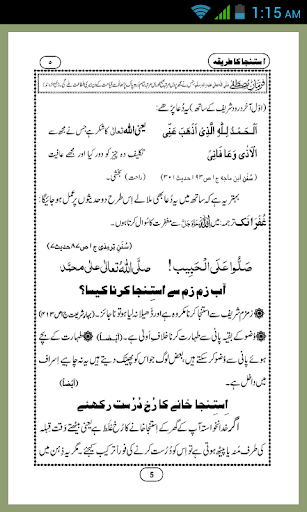 1:15 AM
۵
استنجا کا طریقہ
(اوّل آخر دُرود شریف کے ساتھ) یہ دُعا پڑھے:
اَلْحَمْدُ لِلّٰهِ الَّذِیْ اَذْهَبَ عَنِّی یعنی اللہ تعالیٰ کا شکر ہے جس نے مجھ سے
الْاَذٰی وَعَافَانِیْ تکلیف دہ چیز کو دور کیا اور مجھے عافیت
(سُنَنِ ابن ماجہ ج۱ ص۱۹۳ حدیث ۳۰۱) (راحت) بخشی۔
بہتر یہ ہے کہ ساتھ میں یہ دُعا بھی ملالے اس طرح دو حدیثوں پر عمل ہو جائیگا:
غُفْرَانَكَ ترجمہ: میں اللہ عزوجل سے مغفرت کا سُوال کرتا ہوں۔
(سُنَنِ تِرمِذی ج۱ ص۸۷ حدیث ۷)
صَلُّوا عَلَی الْحَبِیْب! صلَّی اللہُ تعالٰی علٰی محمَّد
آبِ زم زم سے اِستِنجا کرنا کیسا؟
زَم زَم شریف سے استنجا کرنا مکروہ ہے اور ڈھیلا نہ لیا ہو تو ناجائز۔ (بہارِ شریعت ج۱ ص۴۱۳)
وُضو کے بقیہ پانی سے طہارت کرنا خلافِ اَولٰی ہے۔ (اَیضاً) طہارت کے بچے
ہوئے پانی سے وُضو کر سکتے ہیں، بعض لوگ جو اس کو پھینک دیتے ہیں یہ نہ چاہیے اِسراف
میں داخل ہے۔ (اَیضاً)
اِستِنجا خانے کا رُخ دُرُست رکھئے
اگر خدانخواستہ آپ کے گھر کے اِستنجا خانے کا رُخ غَلَط ہے یعنی بیٹھتے وقت قبلہ
کی طرف مُنہ یا پیٹھ ہوتی ہے تو اِس کو دُرُست کرنے کی فوراً ترکیب کیجئے۔ مگر یہ ذِہن میں
5